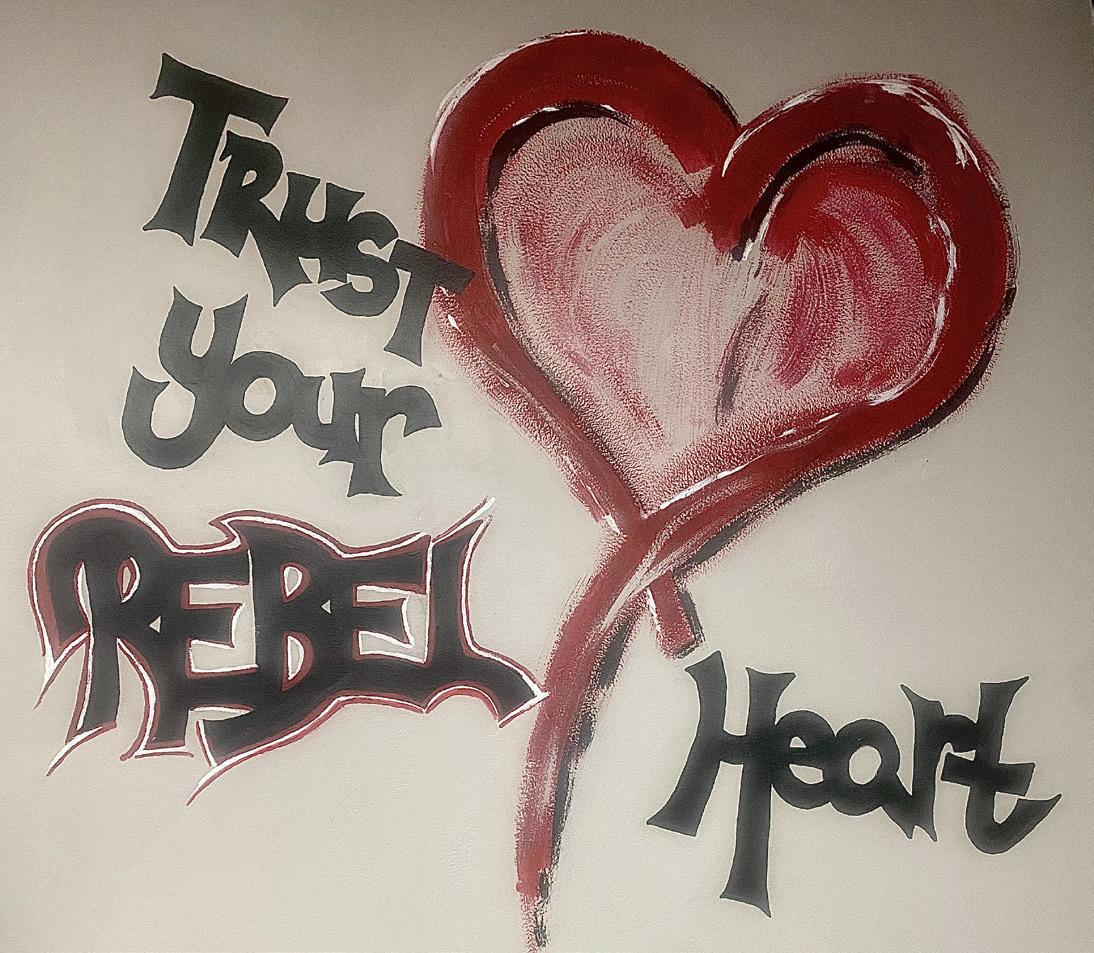 TRUST
your
REBEL
Heart